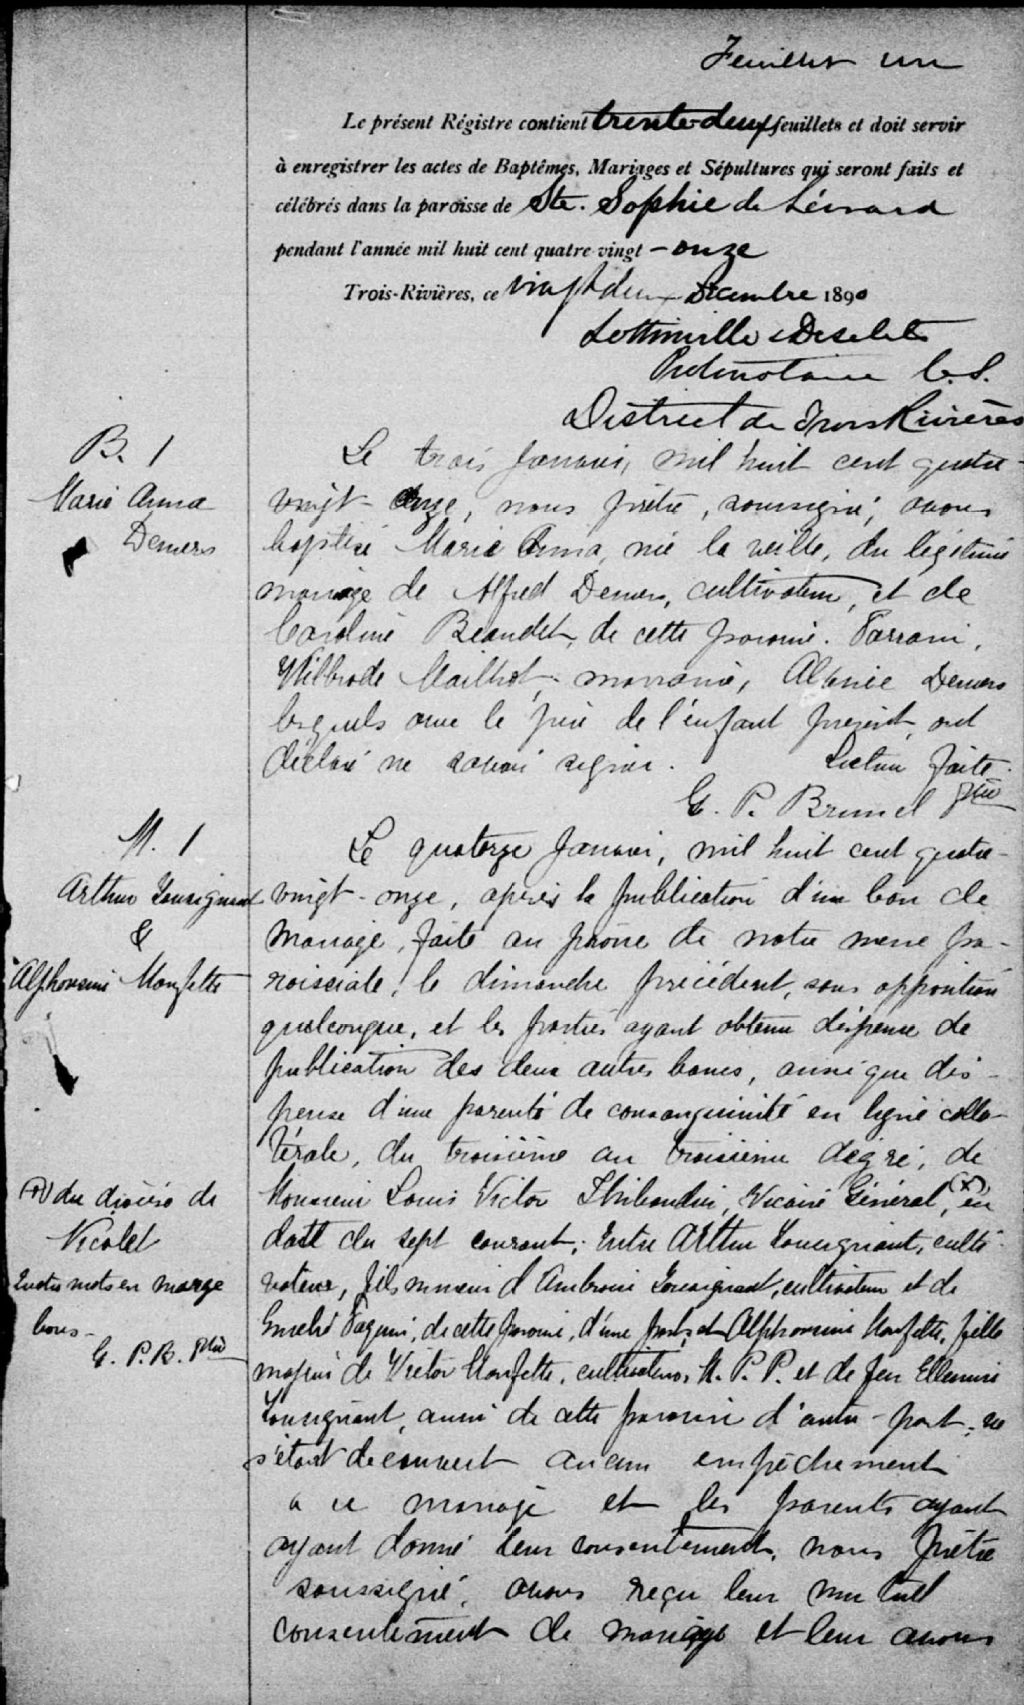 Feuillet un
Le présent Régistre contient trente-deux feuillets et doit servir
à enregistrer les actes de Baptêmes, Mariages et Sépultures qui seront faits et
célébrés dans la paroisse de Ste. Sophie de Lévrard
pendant l'année mil huit cent quatre-vingt-onze
Trois-Rivières, ce vingt deux Décembre 1890
Lottinville Desilets
Protonotaire C.S.
District de Trois Rivières
B. 1
Marie Anna
Demers
Le trois Janvier, mil huit cent quatre-
vingt-onze, nous prêtre, soussigné, avons
baptisé Marie Anna, née la veille, du légitime
mariage de Alfred Demers, cultivateur, et de
Caroline Beaudet, de cette paroisse. Parrain,
Wilbrode Mailhot, marraine, Demers
lesquels avec le père de l'enfant présent, ont
déclaré ne savoir signer. Lecture faite.
G. P. Brunel Ptre
M. 1
Arthur Tousignant
&
Alphonsine Monfette
Le quatorze Janvier, mil huit cent quatre-
vingt-onze, après la publication d'un ban de
mariage, faite au prône de notre messe pa-
roissiale, le dimanche précédent, sans opposition
quelconque, et les parties ayant obtenu dispense de
publication des deux autres bans, ainsi que dis-
pense d'une parenté de consanguinité en ligne colla-
térale, du troisième au troisième degré, de
Monsieur Louis Victor Thibaudier, Vicaire Général, (x) en
date du sept courant; Entre Arthur Tousignant, culti-
vateur, fils mineur d'Ambroise Tousignant, cultivateur et de
Paquin, de cette paroisse, d'une part, et Alphonsine Monfette, fille
majeure de Victor Monfette, cultivateur, M. P. P. et de feu
Tousignant, aussi de cette paroisse d'autre-part; ne
s'étant découvert aucun empêchement
à ce mariage et les parents ayant
ayant donné leur consentement, nous prêtre
soussigné, avons reçu leur mutuel
consentement de mariage et leur avons
(x) du diocèse de
Nicolet
mots en marge
bons-
G. P. B. Ptre